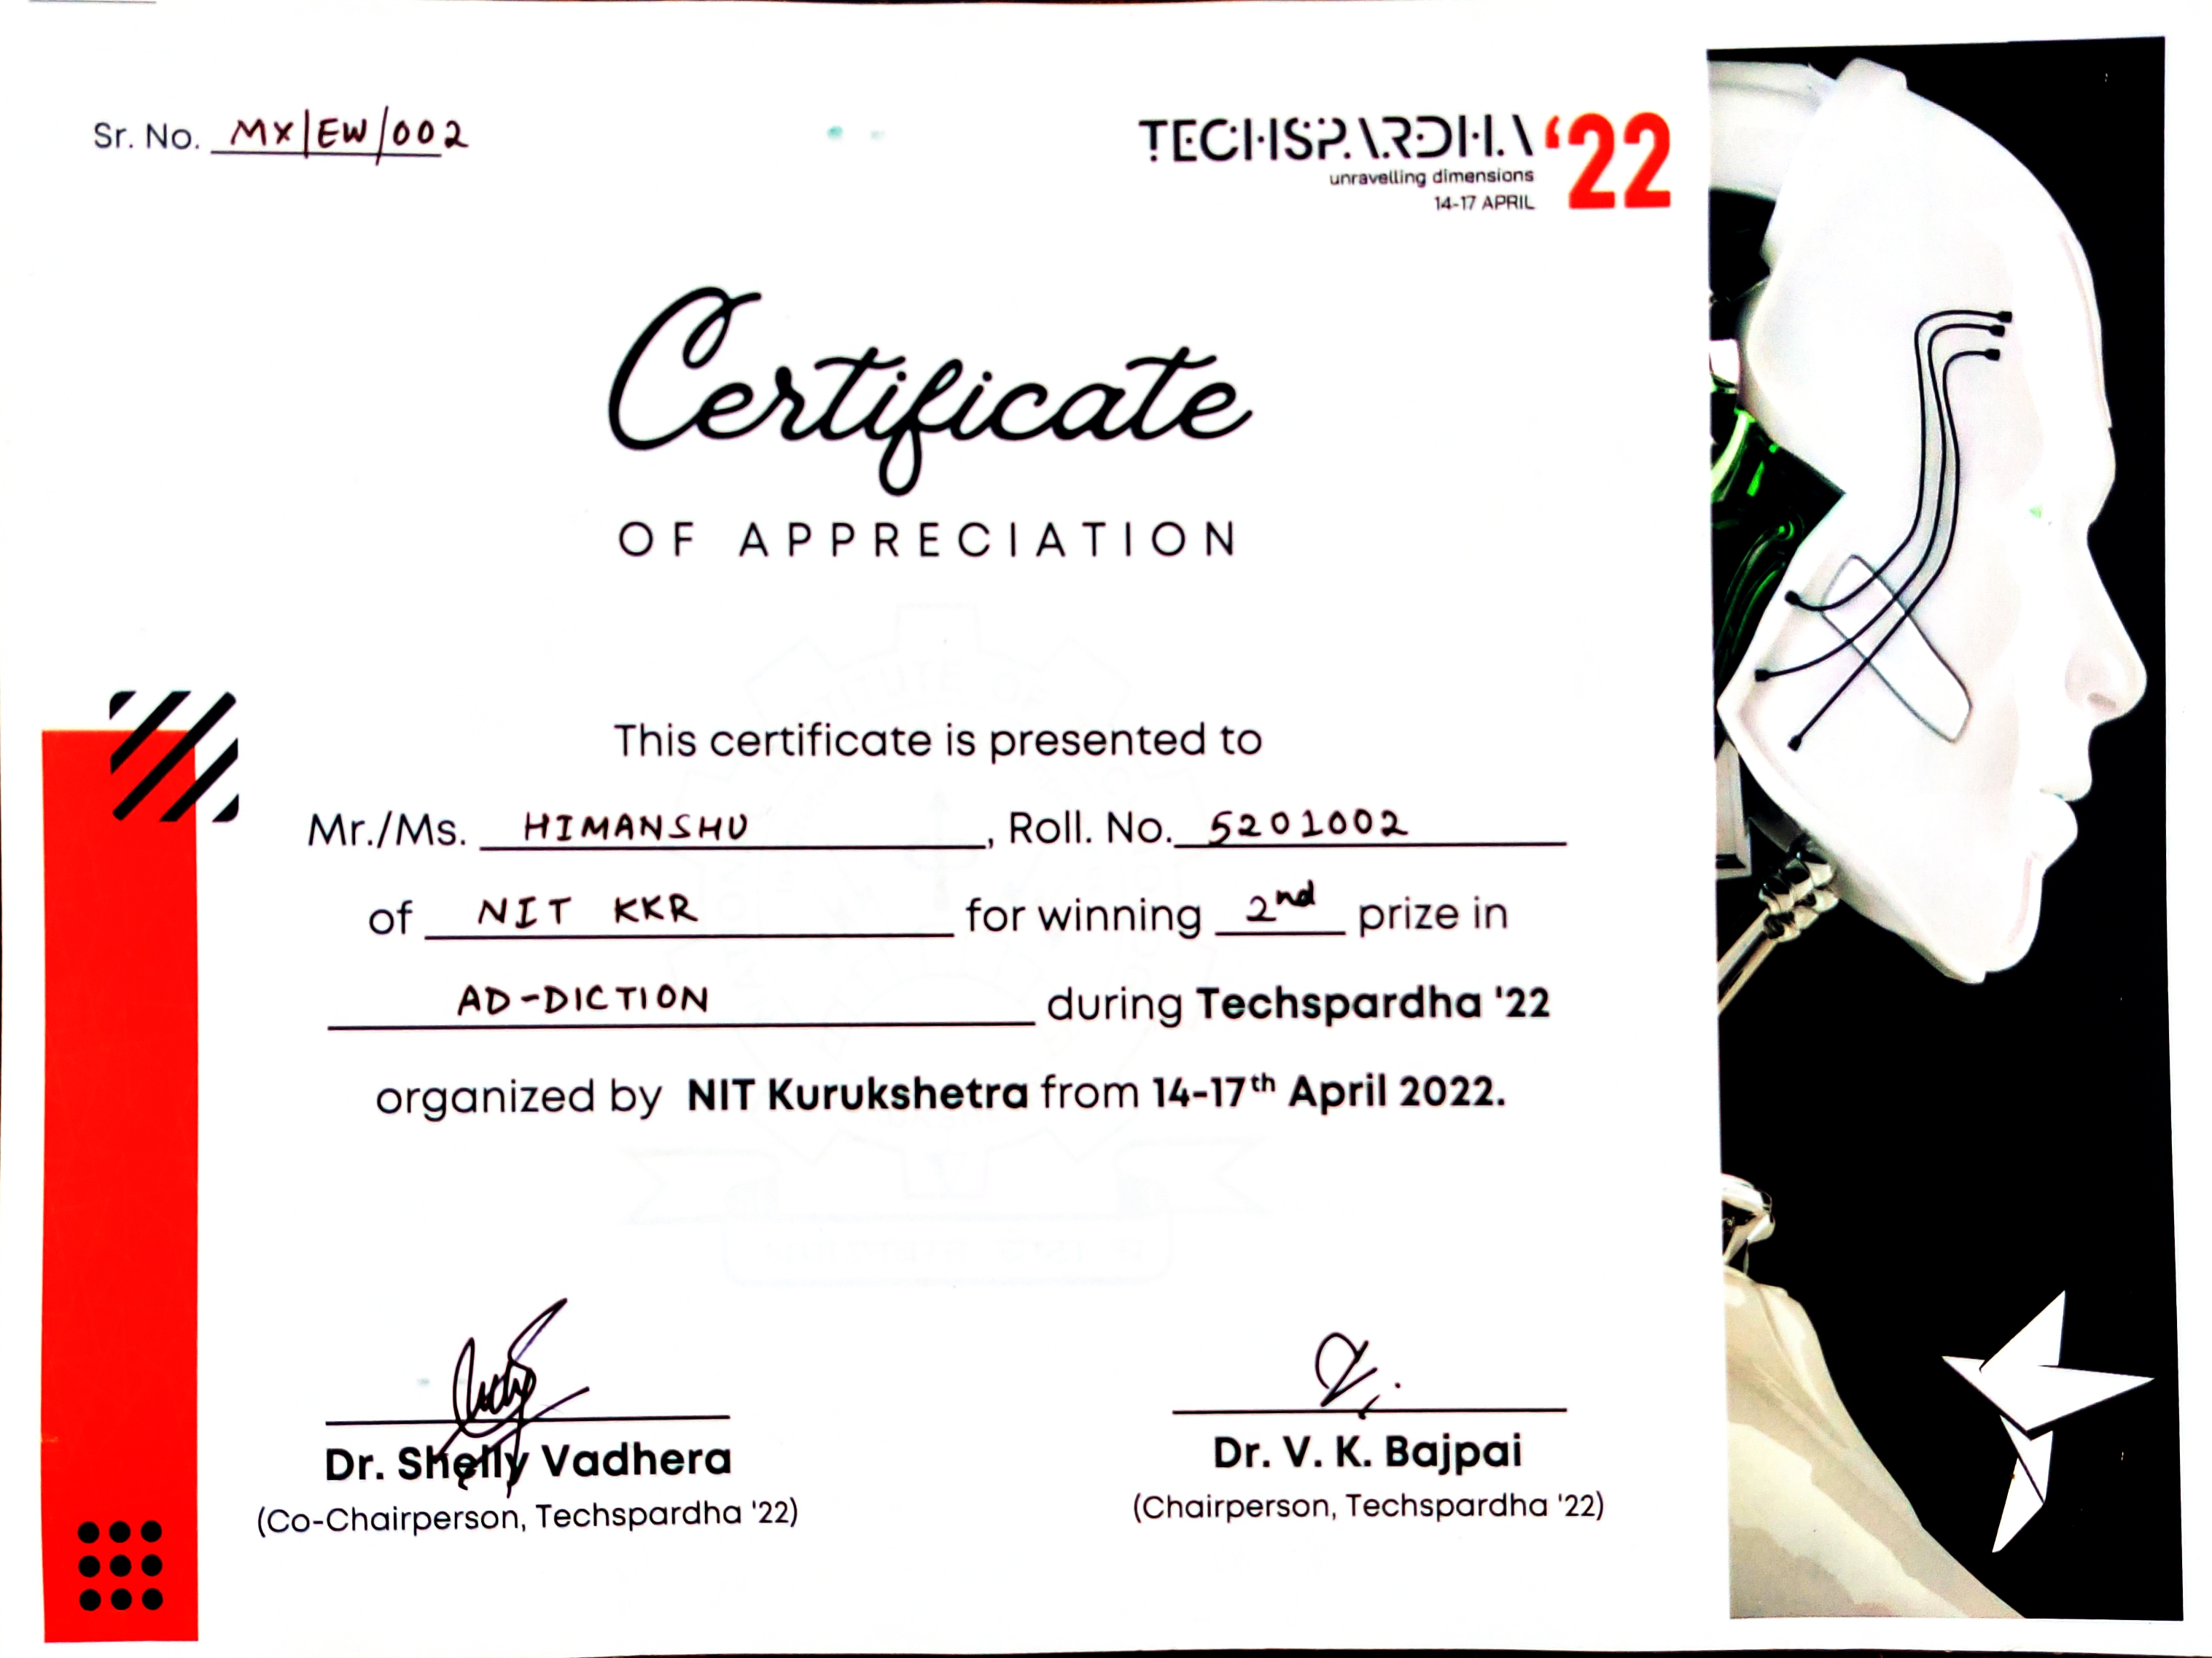 Sr. No. MX|EW/002
TECHSPARDHA '22
unravelling dimensions
14-17 APRIL
Certificate
OF APPRECIATION
This certificate is presented to
Mr./Ms. HIMANSHU, Roll. No. 5201002
of NIT KKR for winning 2nd prize in
AD-DICTION during Techspardha '22
organized by NIT Kurukshetra from 14-17th April 2022.
Dr. Shelly Vadhera
(Co-Chairperson, Techspardha '22)
Dr. V. K. Bajpai
(Chairperson, Techspardha '22)